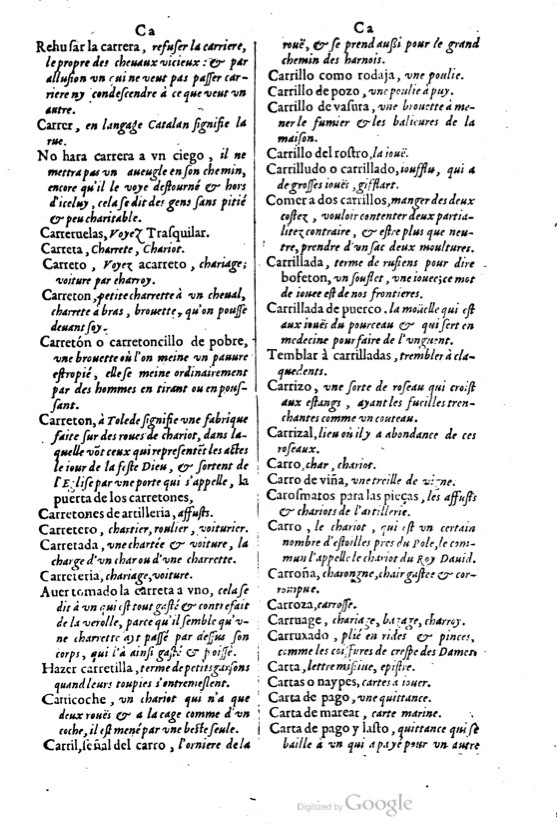 Ca
Rehusar la carrera, refuser la carriere,
le propre des cheuaux vicieux : & par
allusion vn qui ne veut pas passer car-
riere ny condescendre à ce que veut vn
autre.
Carrer, en langage Catalan signifie la
rue.
No hara carrera a vn ciego, il ne
mettra pas vn aueugle en son chemin,
encore qu'il le voye destourné & hors
d'iceluy, cela se dit des gens sans pitié
& peu charitable.
Carreruelas, Voyez Trasquilar.
Carreta, Charrete, Chariot.
Carreto, Voyez acarreto, chariage;
voiture par charroy.
Carreton, petite charrette à vn cheual,
charrete à bras, brouette, qu'on pousse
deuant soy.
Carretón o carretoncillo de pobre,
vne brouette où l'on meine vn pauure
estropié, elle se meine ordinairement
par des hommes en tirant ou en pous-
sant.
Carreton, à Tolede signifie vne fabrique
faite sur des roues de chariot, dans la-
quelle vōt ceux qui representēt les actes
le iour de la feste Dieu, & sortent de
l'Eglise par vne porte qui s'appelle, la
puerta de los carretones,
Carretones de artilleria, affusts.
Carretero, chartier, roulier, voiturier.
Carretada, vne chartée & voiture, la
charge d'vn char ou d'vne charrette.
Carreteria, chariage, voiture.
Auer tomado la carreta a vno, cela se
dit à vn qui est tout gasté & contrefait
de la verolle, parce qu'il semble qu'v-
ne charrette ayt passé par dessus son
corps, qui l'à ainsi gasté &
Hazer carretilla, terme de petits garsons
quand leurs toupies s'entremeslent.
Carricoche, vn chariot qui n'a que
deux rouës & a la cage comme d'vn
coche, il est mené par vne beste seule.
Carril, señal del carro, l'orniere de la
Ca
rouë, & se prend aussi pour le grand
chemin des harnois.
Carrillo como rodaja, vne poulie.
Carrillo de pozo, vne poulie à puy.
Carrillo de vasura, vne brouette à me-
ner le fumier & les balieures de la
maison.
Carrillo del rostro, la iouë.
Carrilludo o carrillado, iouffllu, qui a
de grosses iouës, gifflart.
Comer a dos carrillos, manger des deux
costez, vouloir contenter deux partia-
litez contraire, & est ce plus que neu-
tre, prendre d'vn sac deux moultures.
Carrillada, terme de rufiens pour dire
bofeton, vn souflet, vne iouee; ce mot
de iouee est de nos frontieres.
Carrillada de puerco. la moüelle qui est
aux iouës du pourceau & qui sert en
medecine pour faire de l'vnguent.
Temblar à carrilladas, trembler à cla-
quedents.
Carrizo, vne sorte de roseau qui croist
aux estangs, ayant les fueilles tren-
chantes comme vn couteau.
Carrizal, lieu où il y a abondance de ces
roseaux.
Carro, char, chariot.
Carro de viña, vne treille de vigne.
Carosmatos para las pieças, les affusts
& chariots de l'artillerie.
Carro, le chariot, qui est vn certain
nombre d'estoilles pres du Pole, le com-
mun l'appelle le chariot du Roy Dauid.
Carroña, charongne, chair gastee & cor-
rompue.
Carroza, carrosse.
Carruage, chariage, bagage, charroy.
Carruxado, plié en rides & pinces,
comme les coiffures de crespe des Dames
Carta, lettre missiue, epistre.
Cartas o naypes, cartes à iouer.
Carta de pago, vne quittance.
Carta de marear, carte marine.
Carta de pago y lasto, quittance qui se
baille à vn qui a payé pour vn autre
Digitized by Google